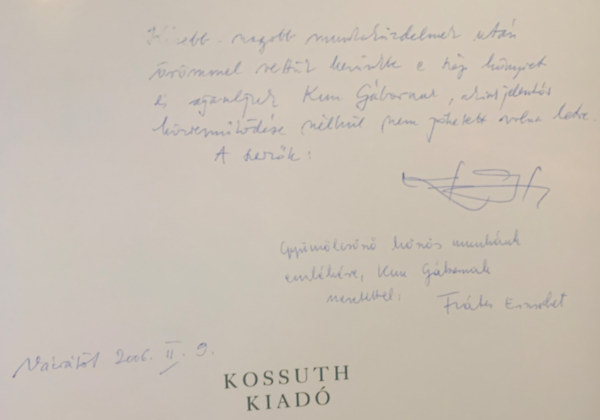 Kisebb-nagyobb munkaküzdelmek után
örömmel vettük kezünkbe e szép könyvet
és ajánljuk Kun Gábornak, akinek jelentős
közreműködése nélkül nem jöhetett volna létre.
A szerzők:
Gyümölcsöző közös munkánk
emlékére, Kun Gábornak
szeretettel: Fráter Erzsébet
Vácrátót 2006. II. 9.
KOSSUTH
KIADÓ